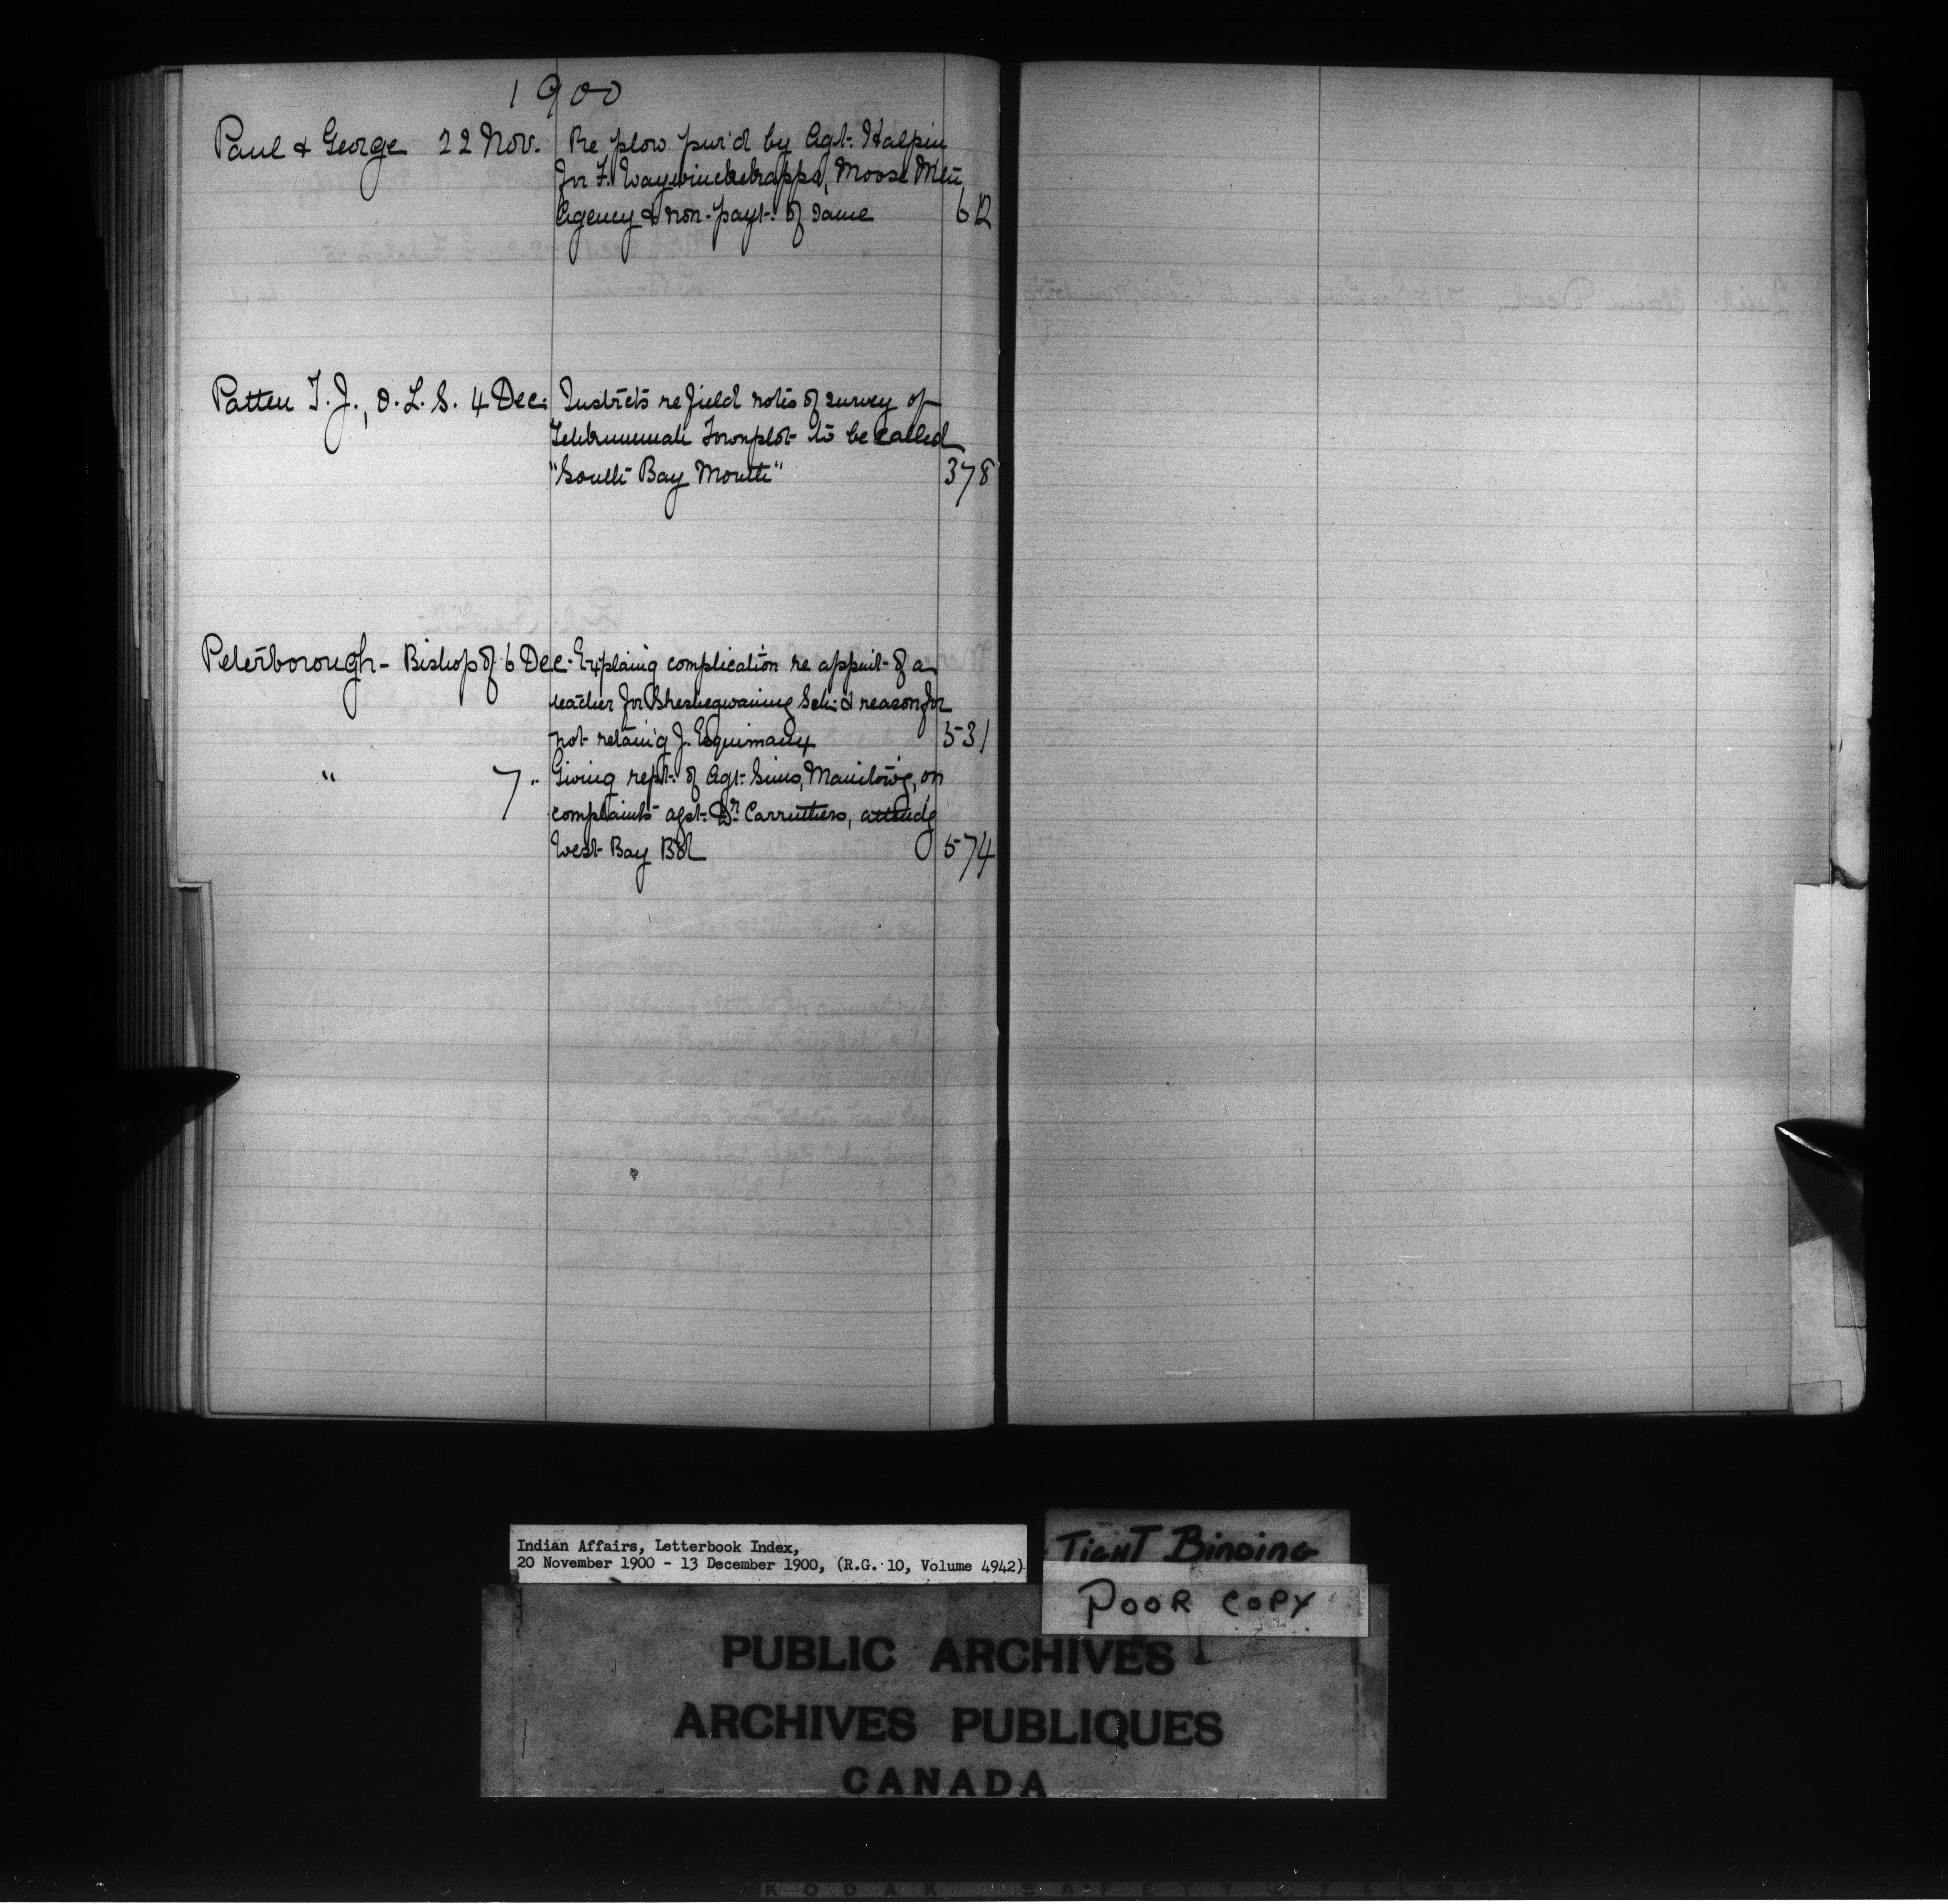 1900
Paul & George 22 Nov. Re plow pur'd by Agt. Halpin
for F. Waywinchekappo, Moose Mtn
Agency & non-payt. of same 612
Patten T. J., O. L. S. 4 Dec. Instrcts re field notes of survey of
Townplot to be called
"South Bay Mouth" 378
Peterborough - Bishop of 6 Dec. Explaing complication re appmt. of a
teacher for Sheshegwaning Sch. & reason for
not retaing J. Esquimaux 531
" 7 " Giving rept. of Agt. Sims, Manitow'g, on
complaints agst. Dr. Carruthers, attendg
West Bay Bd 574
Indian Affairs, Letterbook Index,
20 November 1900 - 13 December 1900, (R.G. 10, Volume 4942)
TIGHT BINDING
POOR COPY
PUBLIC ARCHIVES
ARCHIVES PUBLIQUES
CANADA
KODAK SAFETY FILM